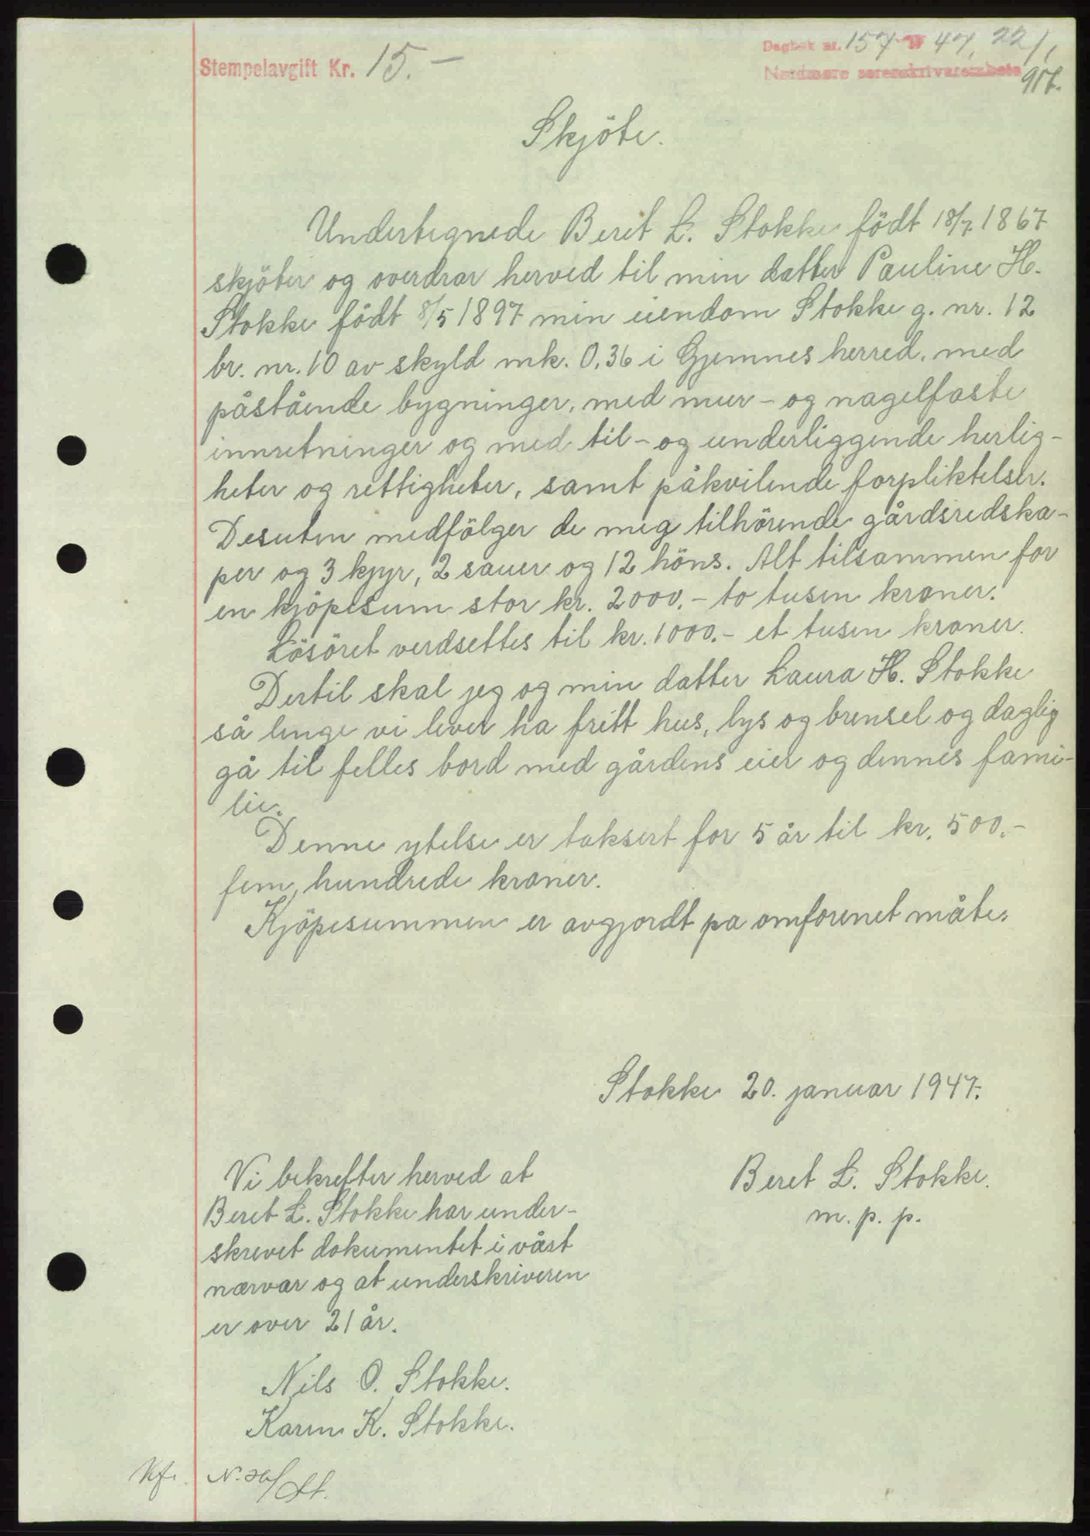 Stempelavgift Kr. 15.-
Dagbok nr. 157 47, 22/1
Nordmøre sorenskriverembete
Skjöte.
Undertegnede Beret L. Stokke födt 18/7 1867
skjöter og overdrar herved til min datter Pauline H.
Stokke födt 8/5 1897 min eiendom Stokke g. nr. 12
br. nr. 10 av skyld mk. 0,36 i Gjemnes herred, med
påstående bygninger, med mur- og nagelfaste
innretninger og med til- og underliggende herlig-
heter og rettigheter, samt påkvilende forpliktelser.
Desuten medfölger de meg tilhörende gårdsredska-
per og 3 kjyr, 2 sauer og 12 höns. Alt tilsammen for
en kjöpesum stor kr. 2000.- to tusen kroner.
Lösöret verdsettes til kr. 1000.- et tusen kroner.
Dertil skal jeg og min datter Laura H. Stokke
så lenge vi lever ha fritt hus, lys og brensel og daglig
gå til felles bord med gårdens eier og dennes fami-
lie.
Denne ytelse er taksert for 5 år til kr. 500.-
fem hundrede kroner.
Kjöpesummen er avgjordt pa omforenet måte.
Stokke 20. januar 1947.
Beret L. Stokke.
m. p. p.
Vi bekrefter herved at
Beret L. Stokke har under-
skrevet dokumentet i vårt
nærvar og at underskriveren
er over 21 år.
Nils O. Stokke.
Karen K. Stokke.
Kfr.